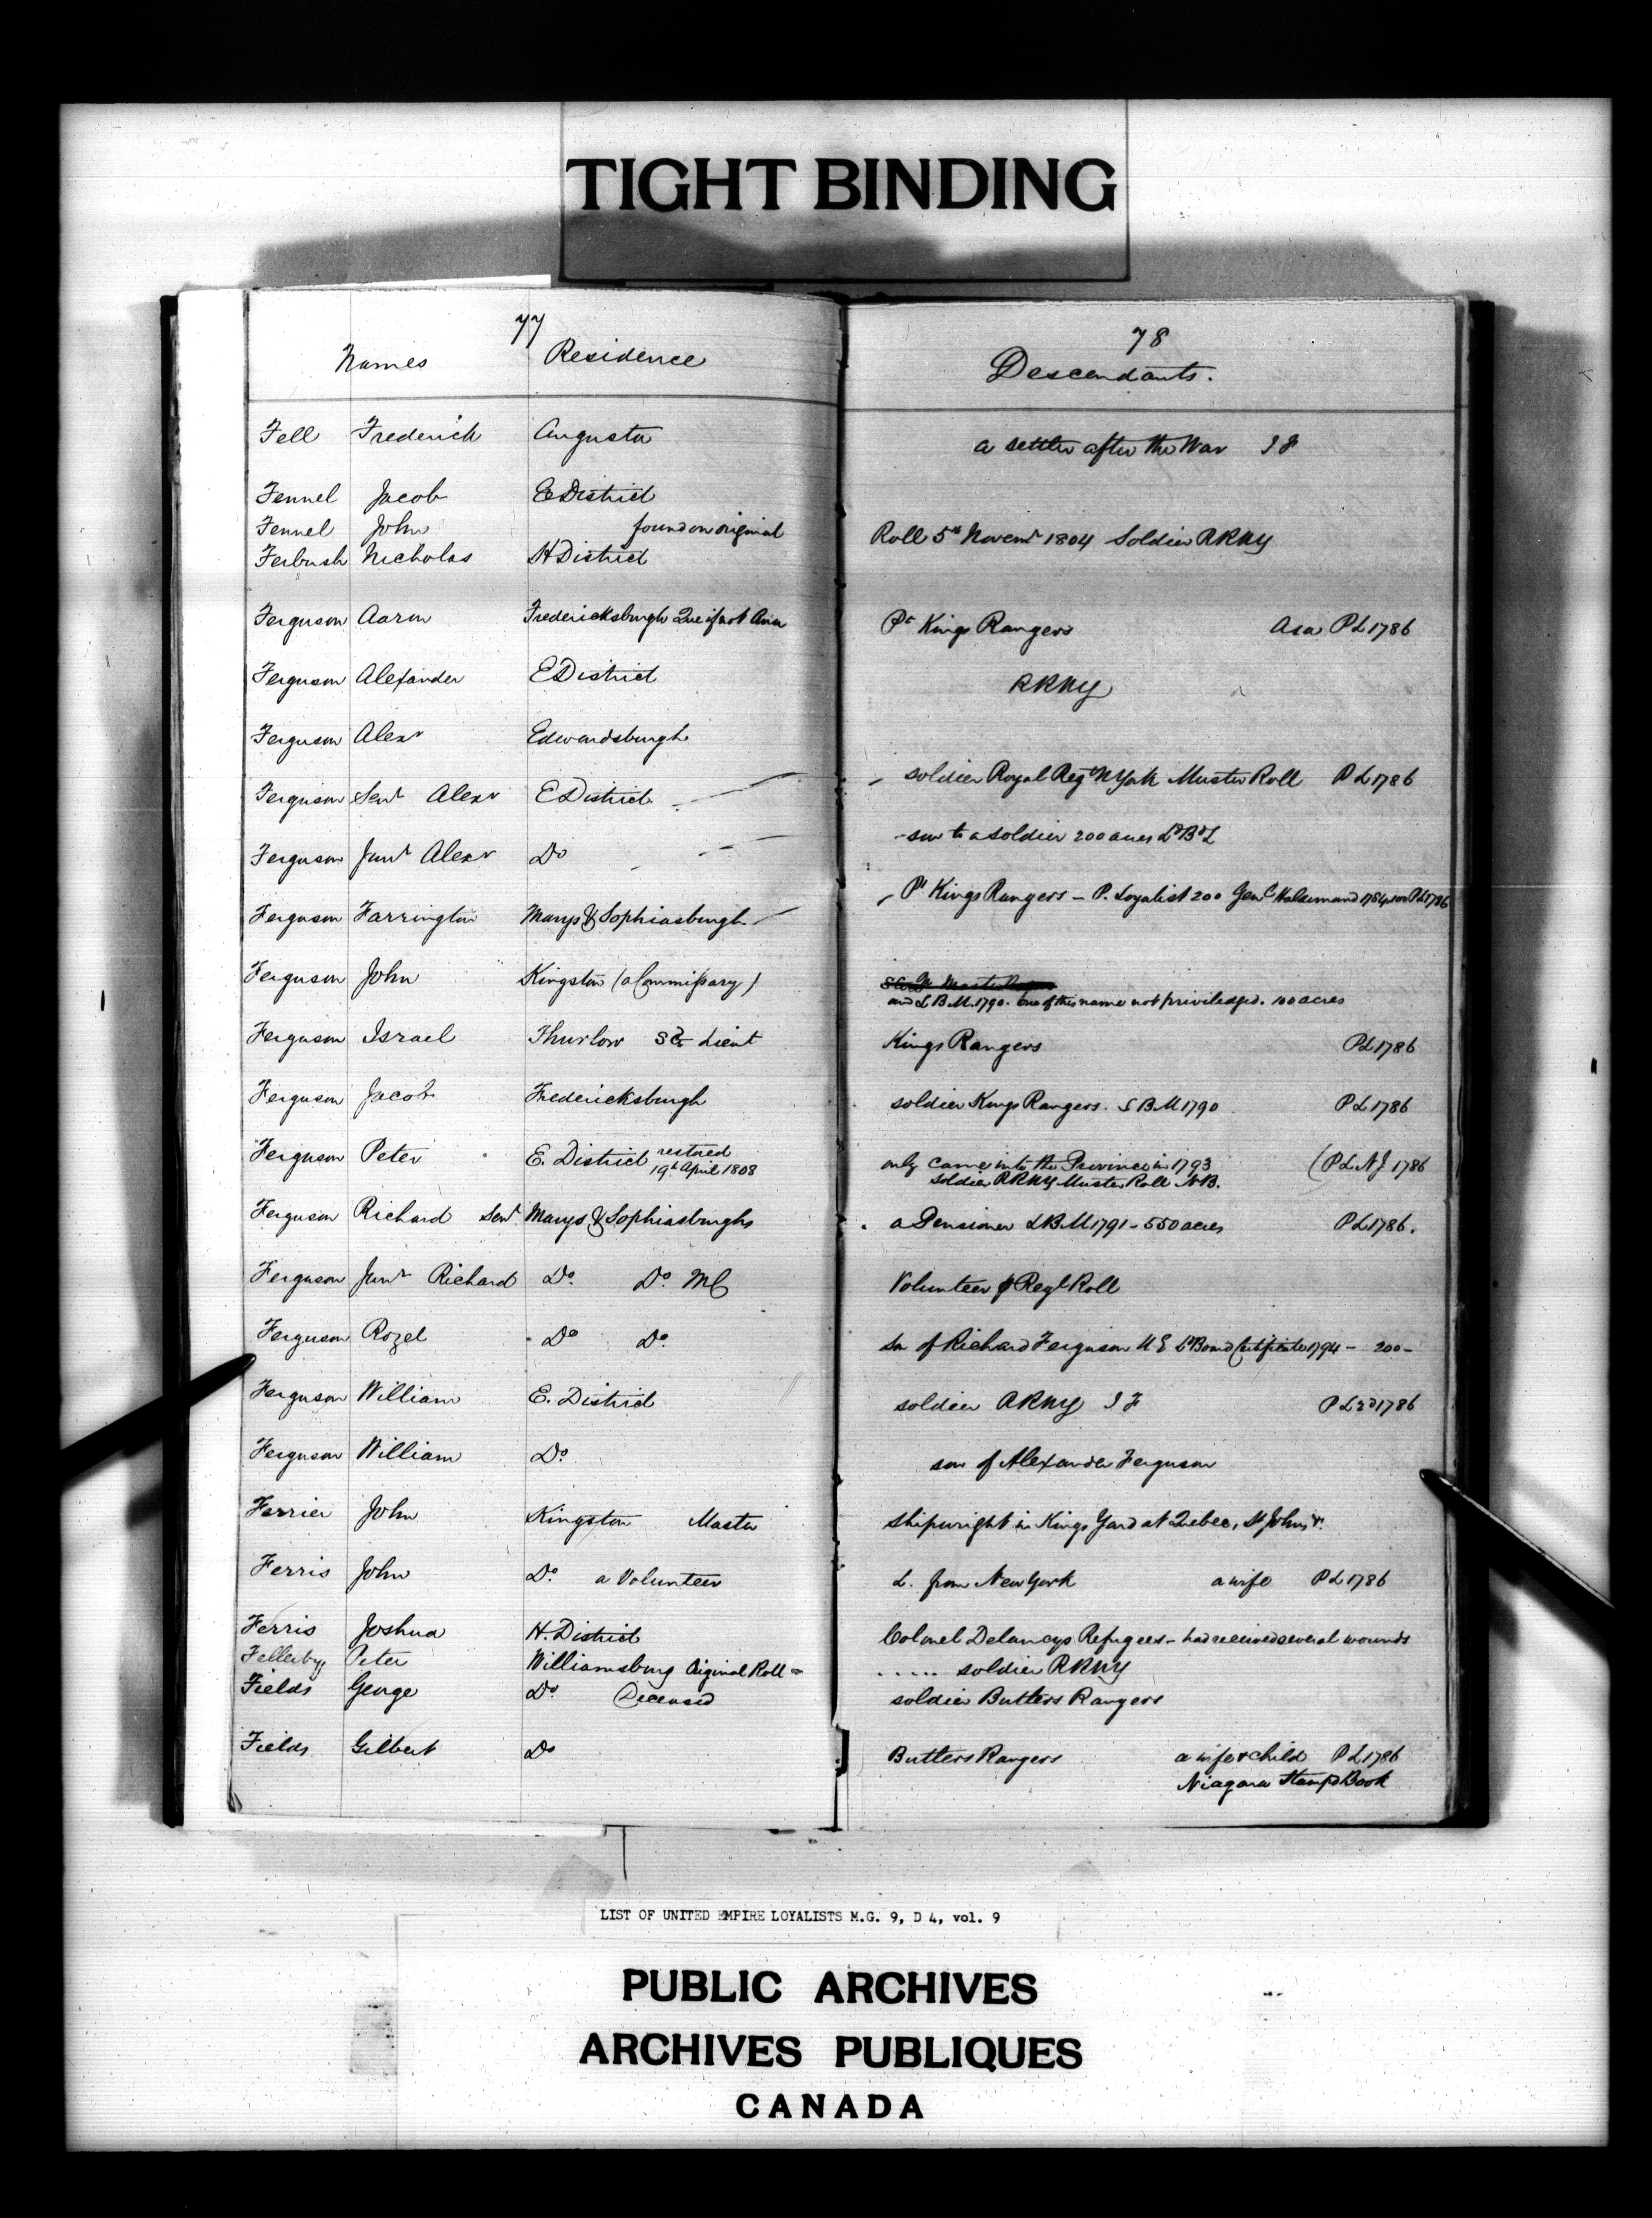 TIGHT BINDING
77
Names Residence
Fell Frederick Augusta
Fennel Jacob E District
Fennel John found on original
Ferbush Nicholas H District
Ferguson Aaron Fredericksburgh Que if not Asa
Ferguson Alexander E District
Ferguson Alexr Edwardsburgh
Ferguson Senr Alexr E District
Ferguson Junr Alexr Do
Ferguson Farrington Marys & Sophiasburgh
Ferguson John Kingston (a Commissary)
Ferguson Israel Thurlow Lieut
Ferguson Jacob Fredericksburgh
Ferguson Peter E. District restored
19th April 1808
Ferguson Richard Senr Marys & Sophiasburghs
Ferguson Junr Richard Do. Do. MC
Ferguson Rozel Do Do.
Ferguson William E. District
Ferguson William Do.
Ferrier John Kingston Master
Ferris John Do. a Volunteer
Ferris Joshua H. District
Fellerby Peter Williamsburg Original Roll =
Fields George Do. Deceased
Fields Gilbert Do
78
Descendants.
a settler after the War I F
Roll 5th Novemr 1804 Soldier RRNY
Pt Kings Rangers Asa PL 1786
RRNY
soldier Royal Regt N York Muster Roll P L 1786
son to a soldier 200 acres
Pt Kings Rangers - P. Loyalist 200 Genl Haldimand 1784 PL 1786
and L B M. 1790. One of this name not priviledged. 100 acres
Kings Rangers PL 1786
soldier Kings Rangers. S B M 1790 P L 1786
only came into the Province in 1793 (P L N J 1786
soldier RRNY Muster Roll N B.
a Pensioner L B M 1791 - 550 acres P L 1786.
Volunteer Regl Roll
son of Richard Ferguson U E Ld Board Certificate 1794 - 200 -
soldier RRNY I F P L 2d 1786
son of Alexander Ferguson
Shipwright in Kings Yard at Quebec, St Johns &c.
L. from New York a wife P L 1786
Colonel Delanceys Refugees - had received several wounds
..... soldier RRNY
soldier Butlers Rangers
Butlers Rangers a wife & child P L 1786
Niagara Stampd Book
LIST OF UNITED EMPIRE LOYALISTS M.G. 9, D 4, vol. 9
PUBLIC ARCHIVES
ARCHIVES PUBLIQUES
CANADA